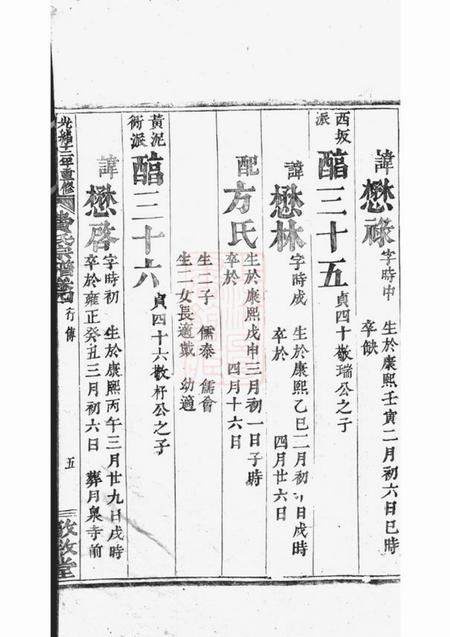 諱懋祿字時中 生於康熙壬寅二月初六日巳時
卒缺
西坂派
醕三十五 貞四十敬瑞公之子
諱懋林字時成 生於康熙乙巳二月初 日戌時
卒於 四月廿六日
配方氏 生於康熙戊申三月初一日子時
卒於 四月十六日
生二子 儒泰 儒會
生二女長適戴 幼適
黃泥衖派
醕三十六 貞四十六敬杅公之子
諱懋啓字時初 生於康熙丙午三月廿九日戌時
卒於雍正癸丑三月初六日 葬月泉寺前
光緒 年重修 宗譜 行傳 五 敦堂